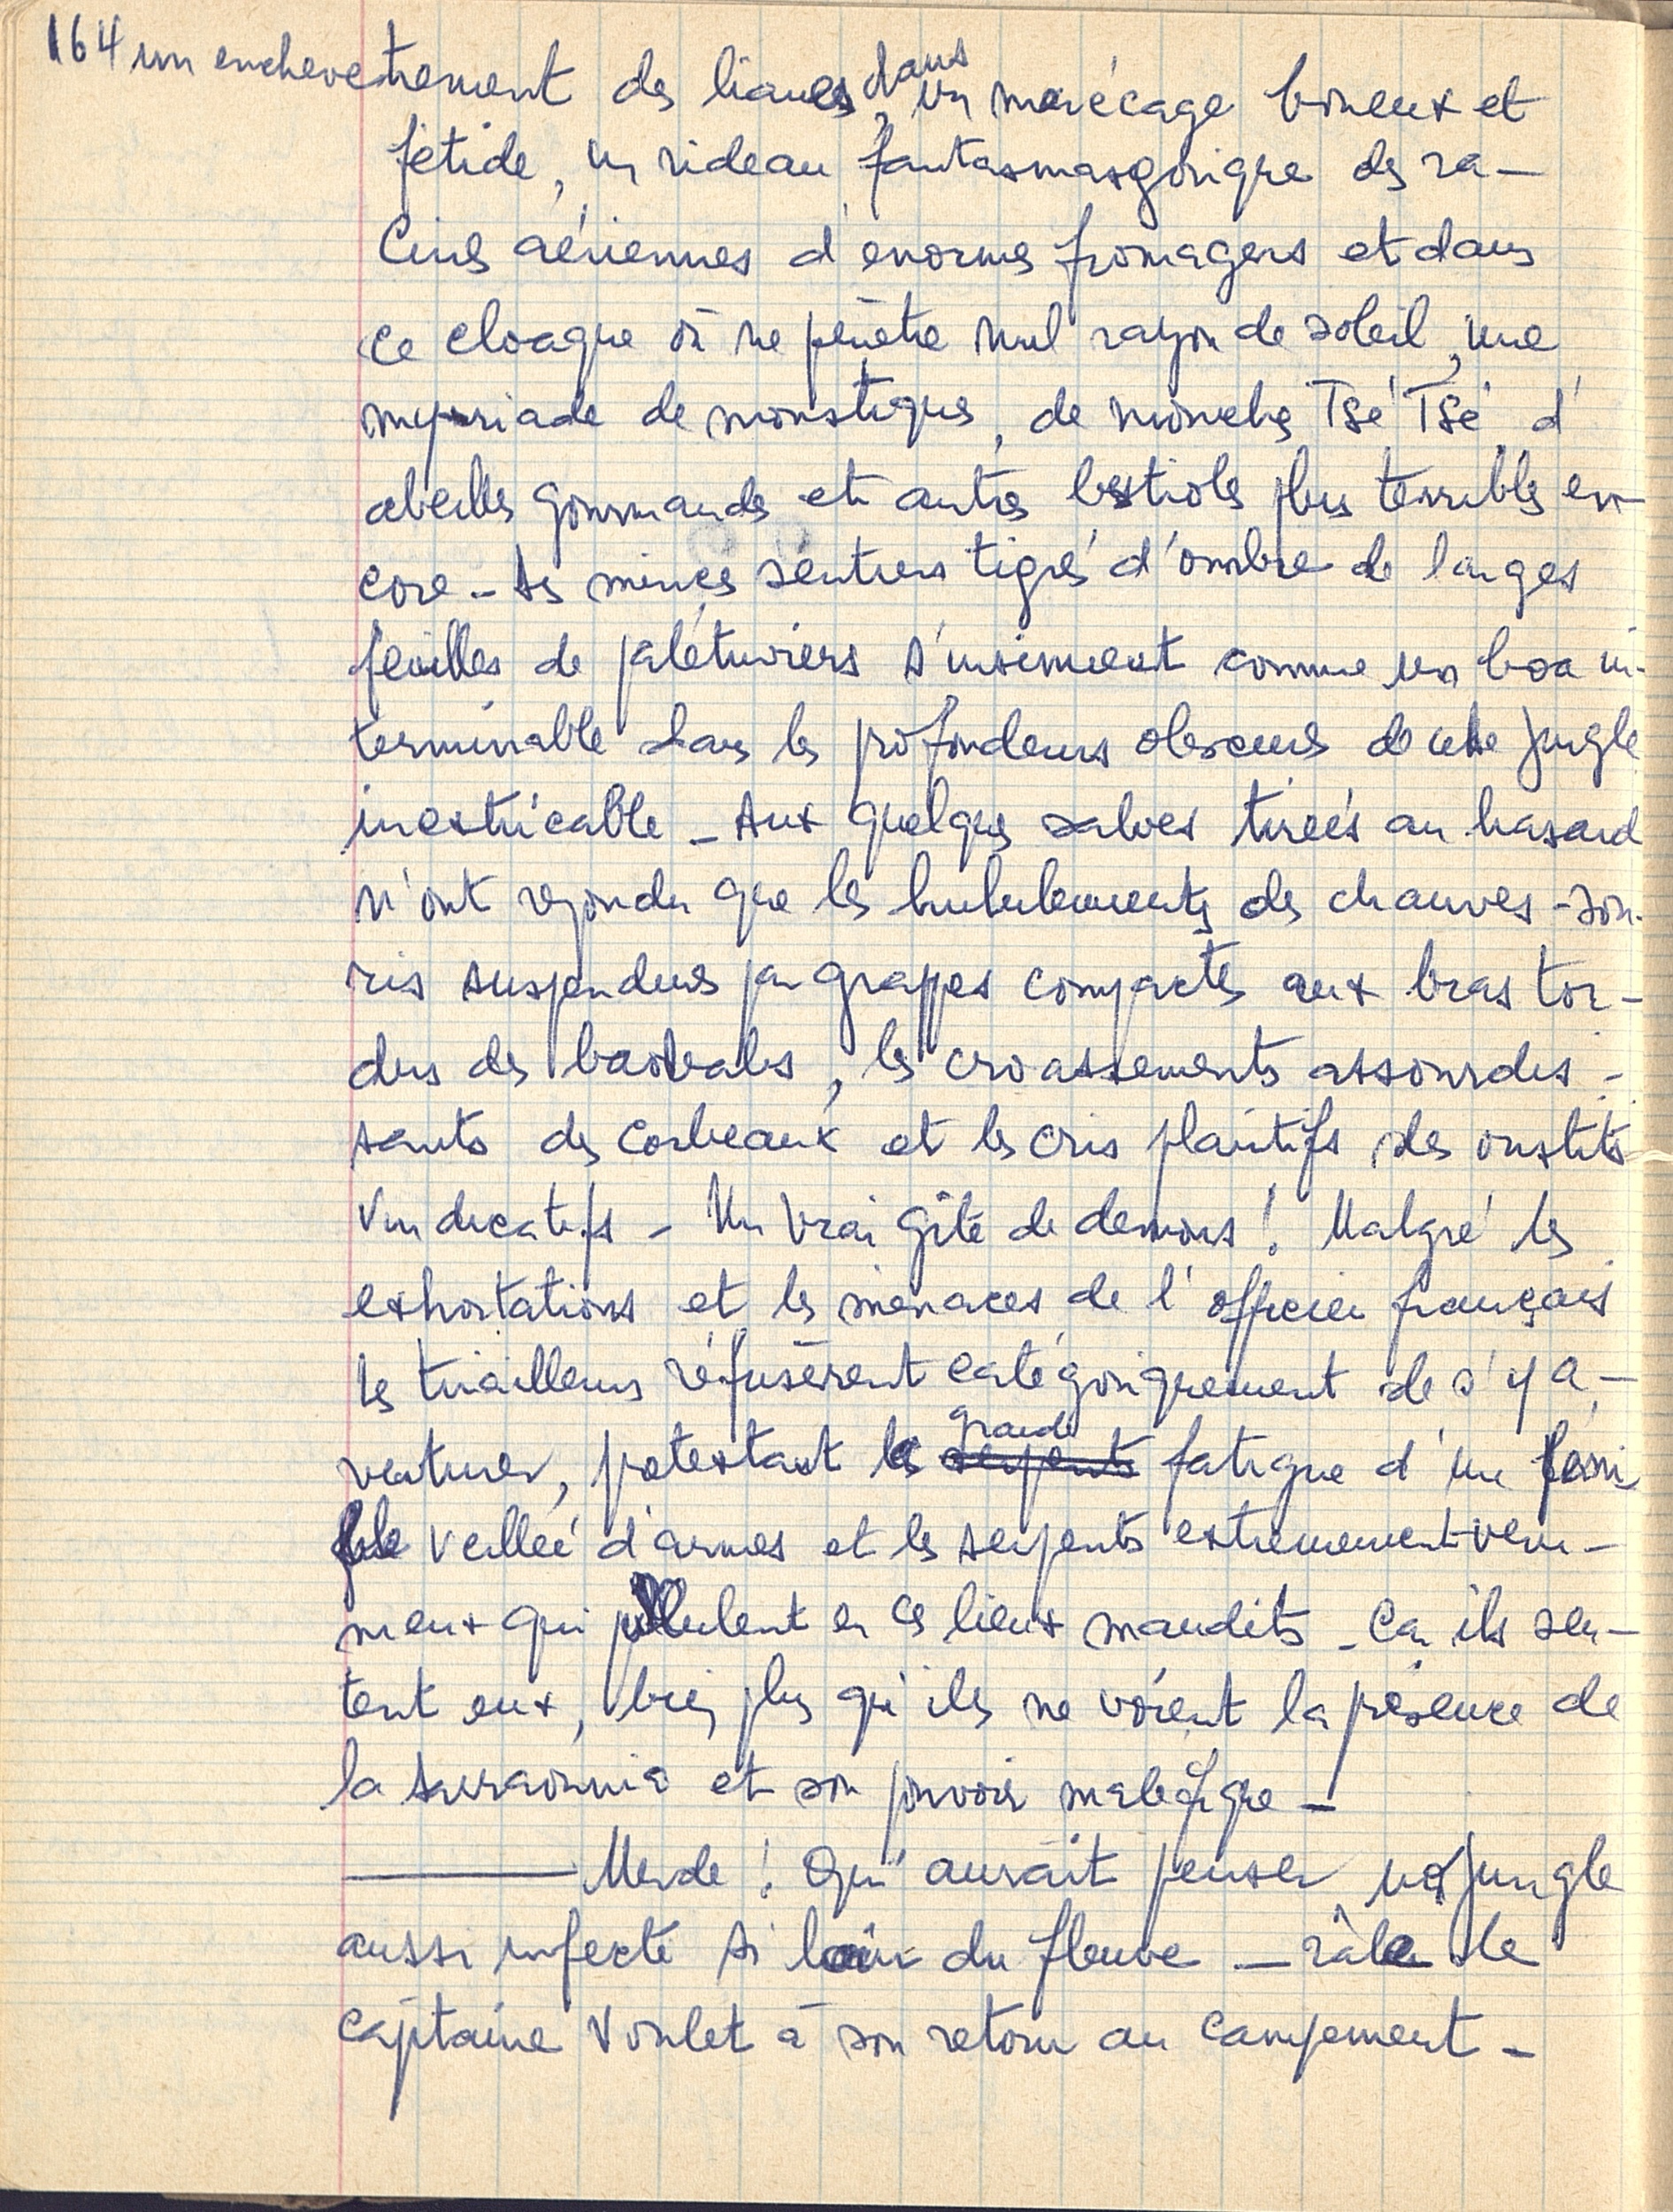 164 un enchevetrement des lianes dans un marécage boueux et
fétide, un rideau fantasmasgorique des ra-
cines aériennes d'enormes fromagers et dans
ce cloaque où ne pénètre nul rayon de soleil, une
myriade de moustiques, de mouches Tsé Tsé, d'
abeilles gourmandes et autres bestioles plus terribles en-
core - Les minces sentiers tigrés d'ombre de larges
feuilles de palétuviers s'insinuent comme un boa in-
terminable dans les profondeurs obscures de cette jungle
inextricable - Aux quelques salves tirées au hasard
n'ont repondu que les hululements des chauves-sou-
ris suspendues par grappes compactes aux bras tor-
dus des baobabs, les croassements assourdis-
sants des corbeaux et les cris plaintifs des oustitis
vindicatifs - Un vrai gîte de demons! Malgré les
exhortations et les menaces de l'officier français
les tirailleurs réfusèrent catégoriquement de s'y a-
venturer, pretextant la grande serpents fatigue d'une peni
ble veillée d'armes et les serpents extremement veni-
meux qui pullulent en ces lieux maudits - Car ils sen-
tent eux, bien plus qu'ils ne voient la présence de
la Sarraounia et son pouvoir malefique -
Merde! Qui aurait penser une jungle
aussi infecte si loin du fleuve - râle le
capitaine Voulet à son retour au campement -